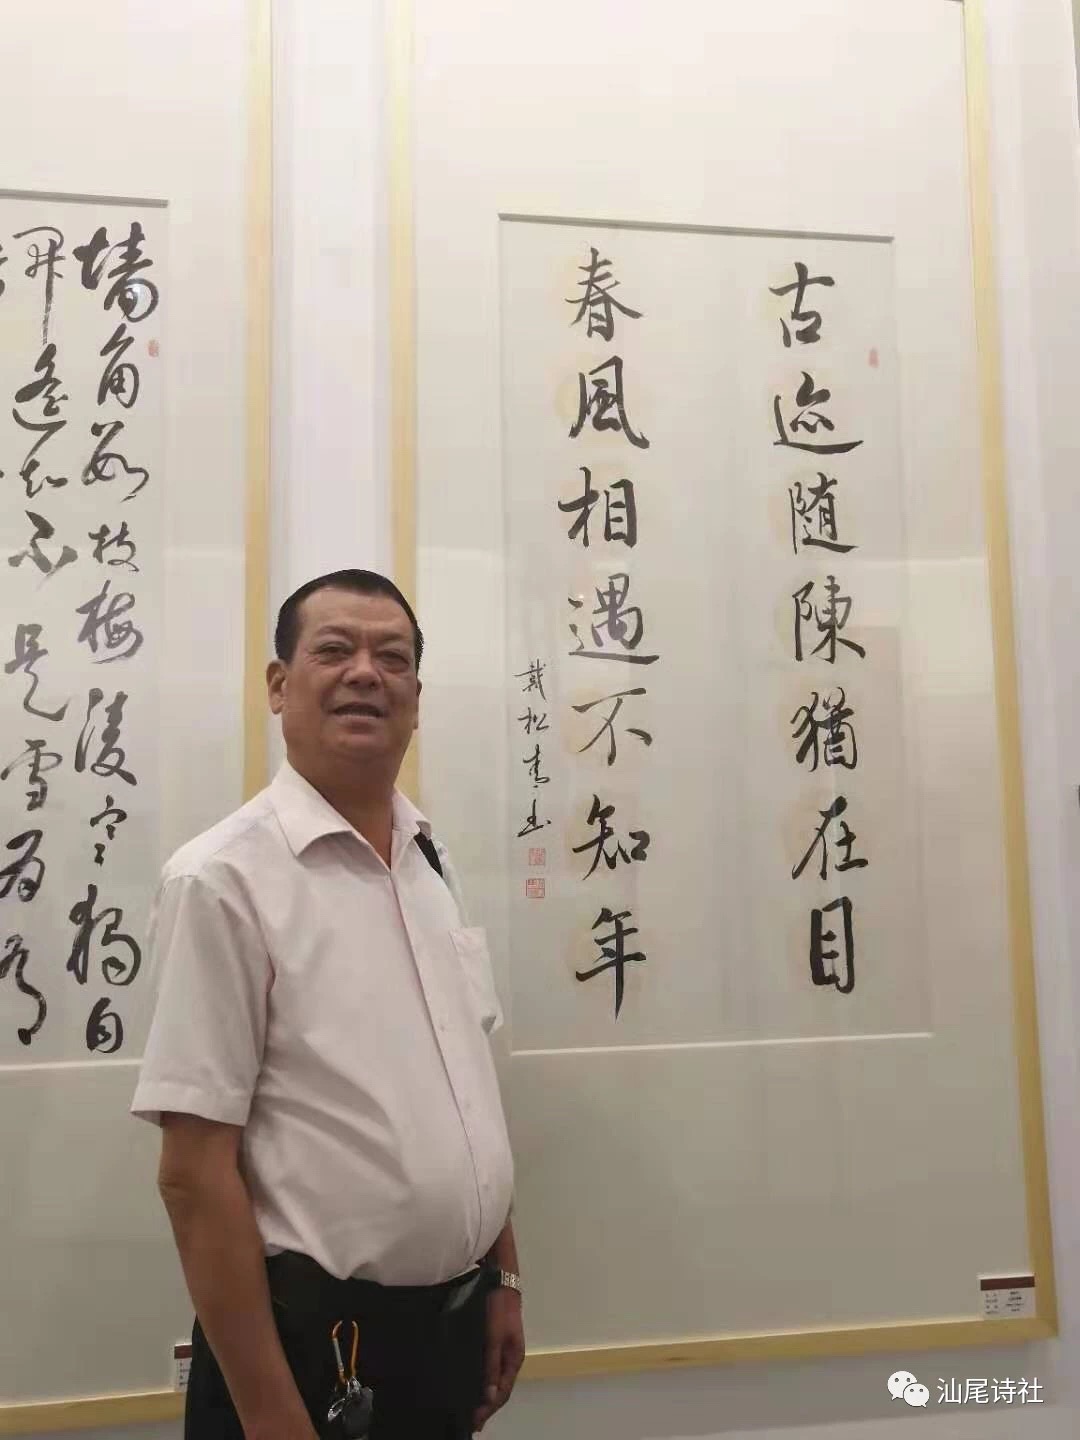 古迹随陳猶在目
春風相遇不知年
戴松青书
墙角数枝梅凌寒独自
開遥知不是雪为有
汕尾诗社